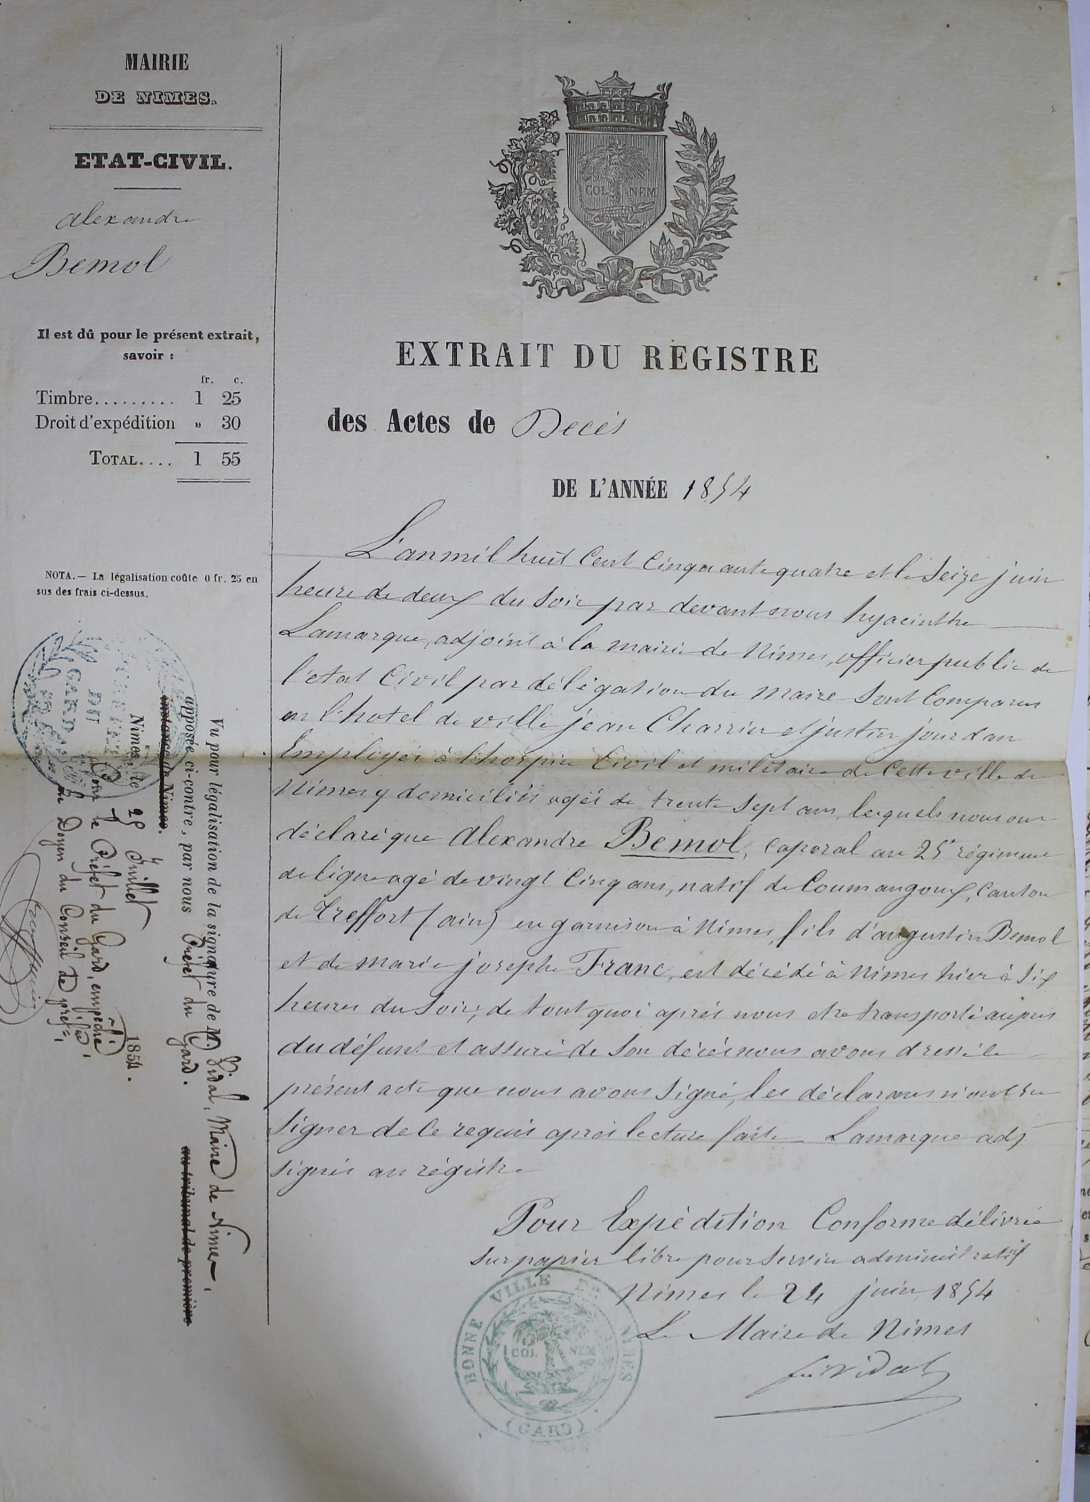 MAIRIE
DE NIMES.
ETAT-CIVIL.
alexandre
Bemol
Il est dû pour le présent extrait,
savoir :
fr. c.
Timbre......... 1 25
Droit d'expédition » 30
TOTAL.... 1 55
NOTA.— La légalisation coûte 0 fr. 25 en
sus des frais ci-dessus.
Vu pour légalisation de la signature de M Vidal, Maire de Nimes,
apposée ci-contre, par nous Préfet du Gard. au tribunal de première
instance de Nimes.
Nimes, le 28 Juillet 1854.
Pour le Préfet du Gard, empêché
Le Doyen du Conseil de préf.re,
COL NEM
EXTRAIT DU REGISTRE
des Actes de Décès
DE L'ANNÉE 1854
L'an mil huit Cent Cinquante quatre et le Seize juin
heure de deux du Soir par devant nous hyacinthe
Lamarque, adjoint à la mairie de Nimes, officier public de
l'etat Civil par délégation du maire Sont Comparus
en l'hotel de ville jean Charrier et justin jourdan
Employés à l'hospice Civil et militaire de Cette ville de
Nimes y domiciliés agés de trente Sept ans, lesquels nous ont
déclaré que Alexandre Bemol, Caporal au 25e régiment
de ligne agé de vingt Cinq ans, natif de Coumangoux, Canton
de Treffort (ain) en garnison à Nimes, fils d'augustin Bemol
et de marie josephe Franc, est décédé à Nimes hier à Six
heures du Soir, de tout quoi après nous etre transporté auprès
du défunt et assuré de Son décès nous avons dressé le
présent acte que nous avons Signé, les déclarans n'ont Su
Signer de le requis après lecture faite Lamarque adj
signés au régistre
Pour Expédition Conforme délivrée
sur papier libre pour Service administratif
Nimes le 24 juin 1854
Le Maire de Nimes
Vidal
BONNE VILLE DE NIMES
COL NEM
(GARD)